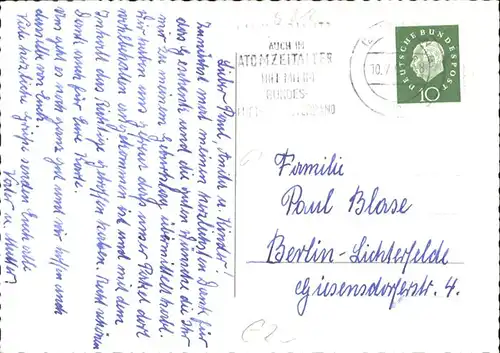 Lieber Paul, Anita u. Kinder!
Zunächst mal meinen herzlichsten Dank für
das Gedenken und die guten Wünsche die Ihr
mir zu meinem Geburtstag übermittelt habt.
Wir haben uns gefreut daß unser Paket dort
wohlbehalten angekommen ist und wir mit dem
Inhalt das Richtige getroffen haben. Recht schönen
Dank auch für Eure Karte.
Uns geht es noch ganz gut und wir hoffen auch
dasselbe von Euch.
Viele herzliche Grüße senden Euch alle
Vater u. Mutter
AUCH IM
ATOMZEITALTER
BUNDES-
10.7
DEUTSCHE BUNDESPOST
10
Familie
Paul Blase
Berlin-Lichterfelde
Giesensdorferstr. 4.